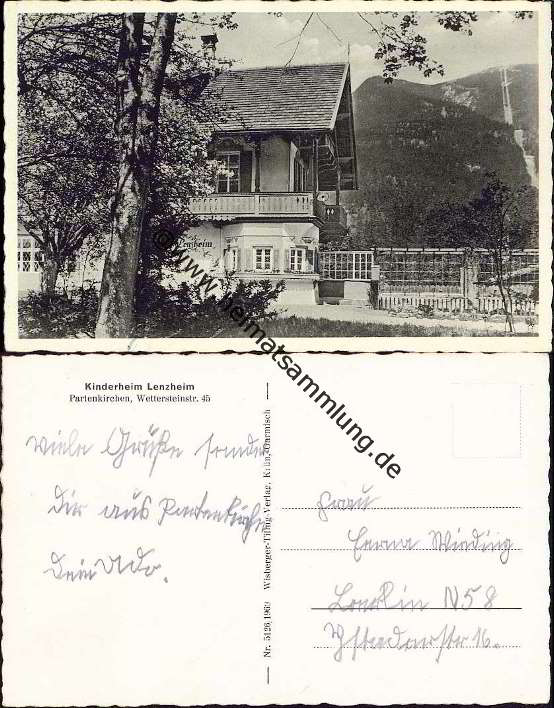 Lenzheim
© www.heimatsammlung.de
Kinderheim Lenzheim
Partenkirchen, Wettersteinstr. 45
viele Grüße sendet
Dir aus Partenkirchen
Dein Udo.
Nr. 5126 1962 Wisberger-Tillig-Verlag, Krün/Garmisch
Frau
Erna
N 58
16.